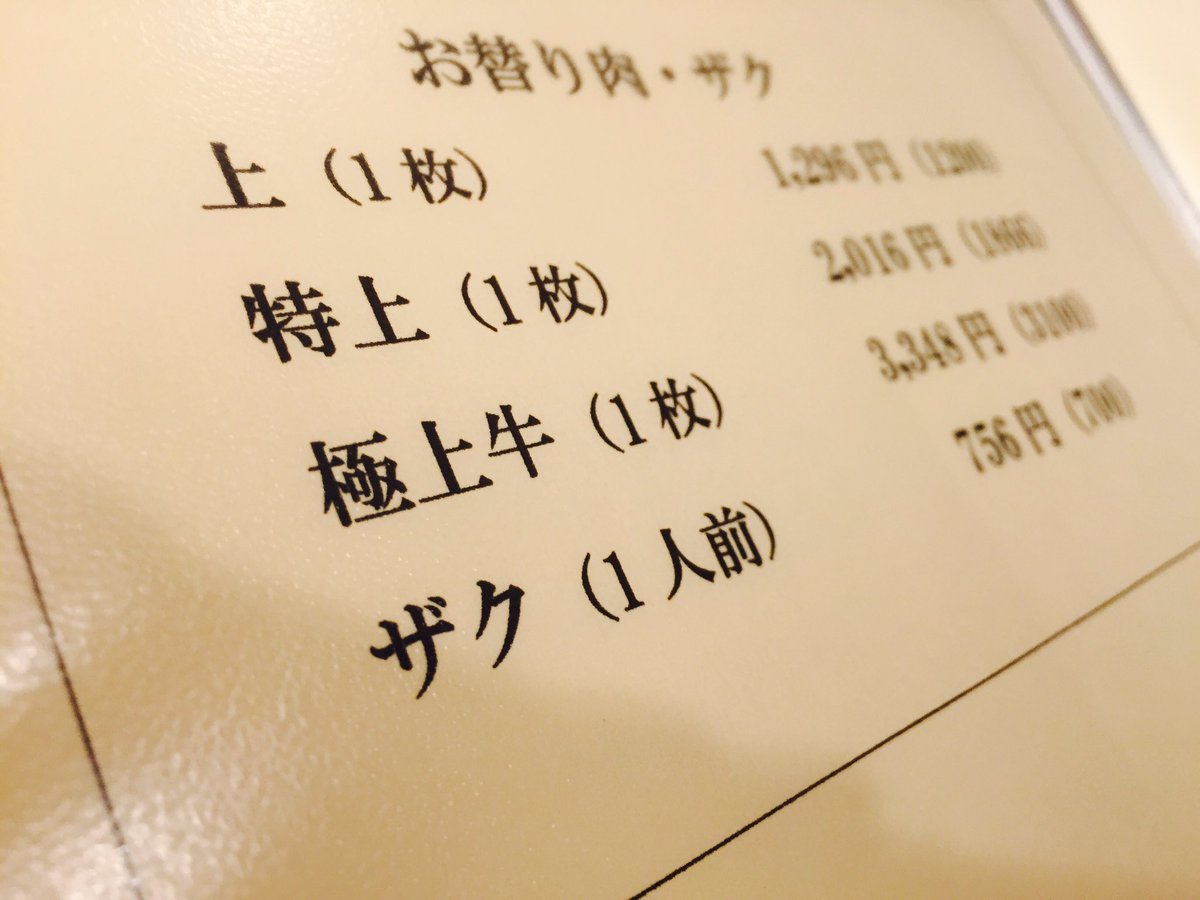 お替り肉・ザク
上（1枚） 1,296円（1200）
特上（1枚） 2,016円（1866）
極上牛（1枚） 3,348円（3100）
ザク（1人前） 756円（700）